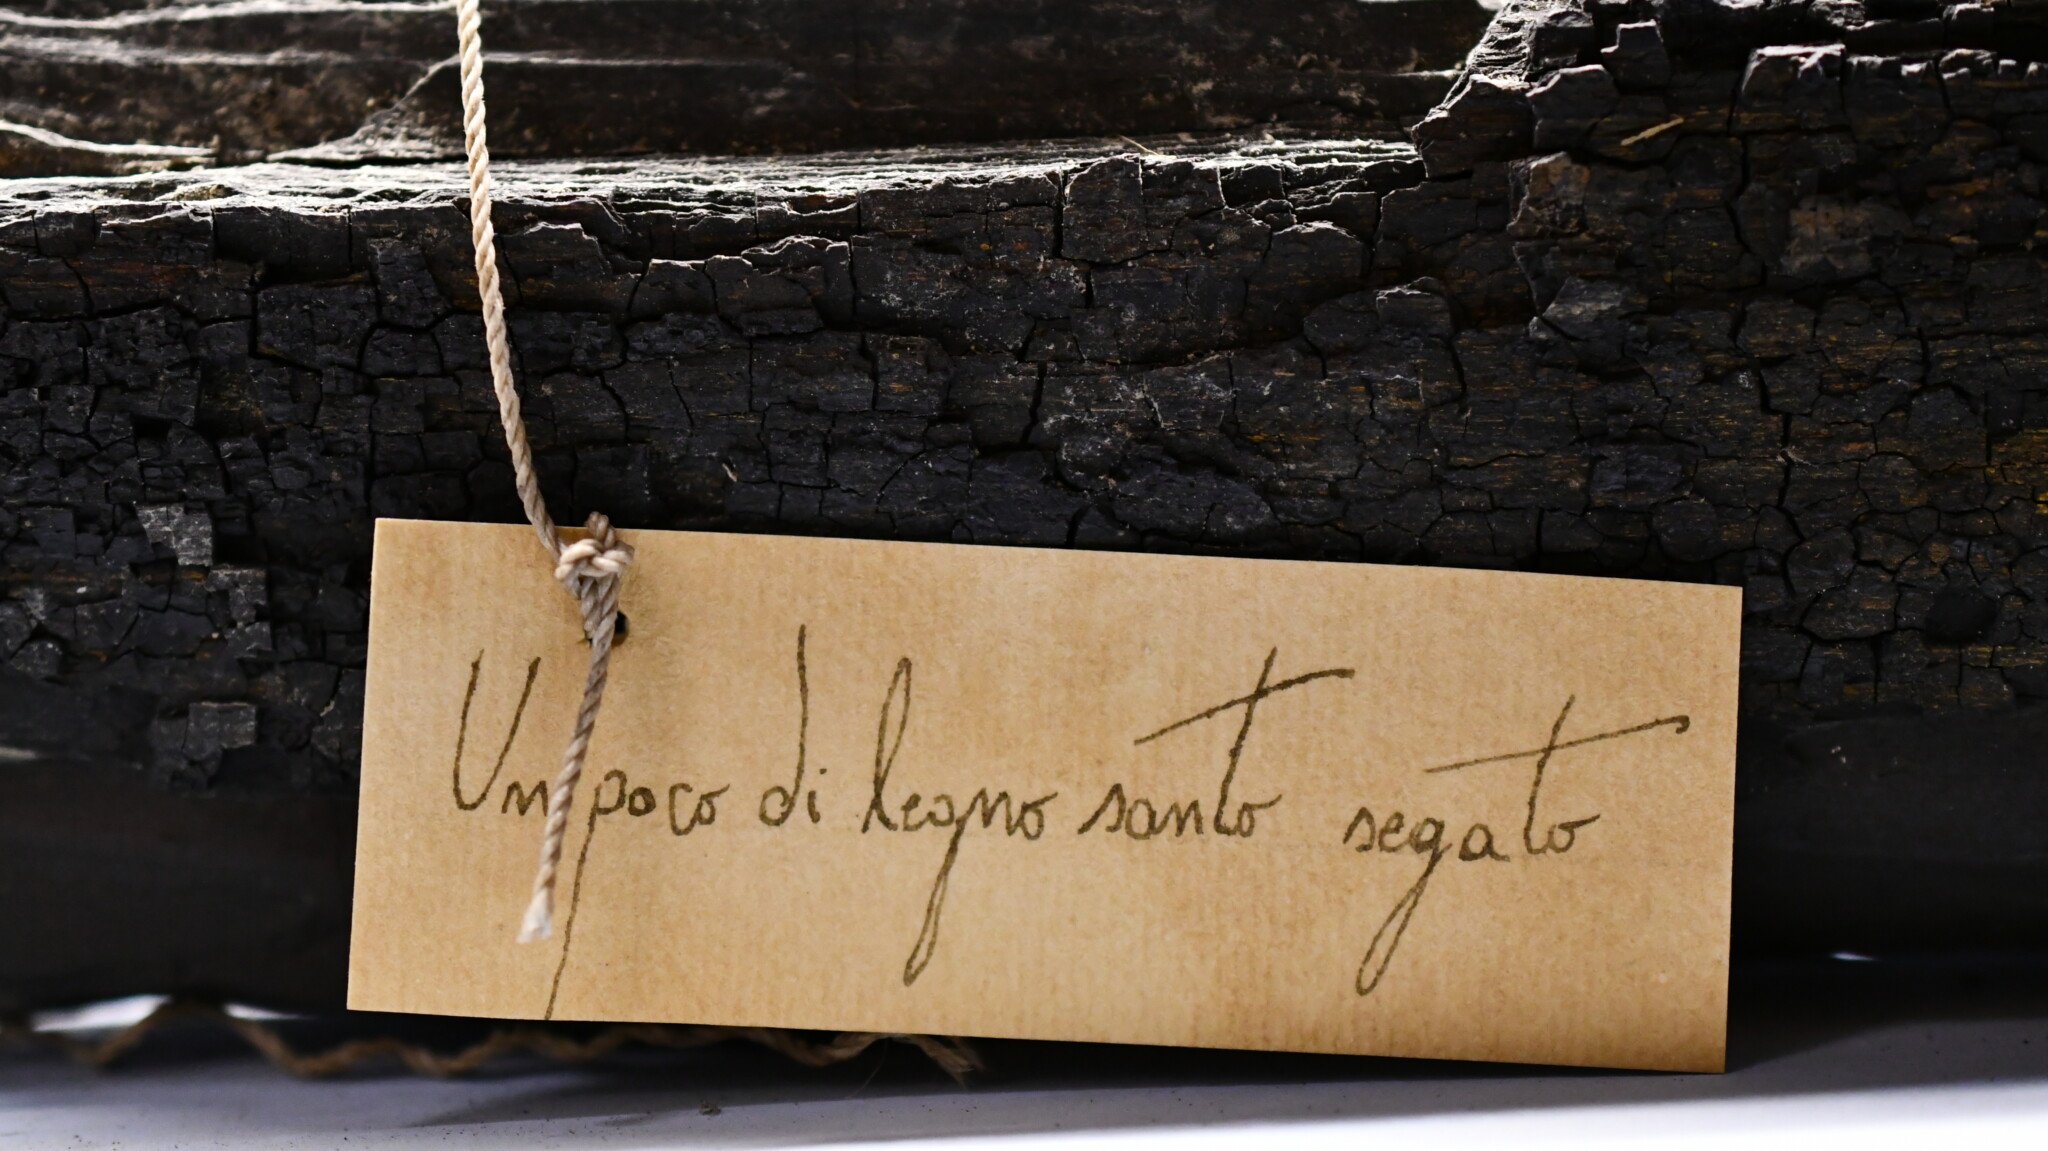 Un poco di legno santo segato